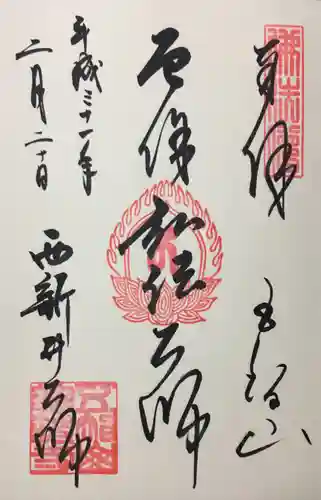 奉拝
五智山
厄除弘法大師
平成三十一年
二月二十日
西新井大師